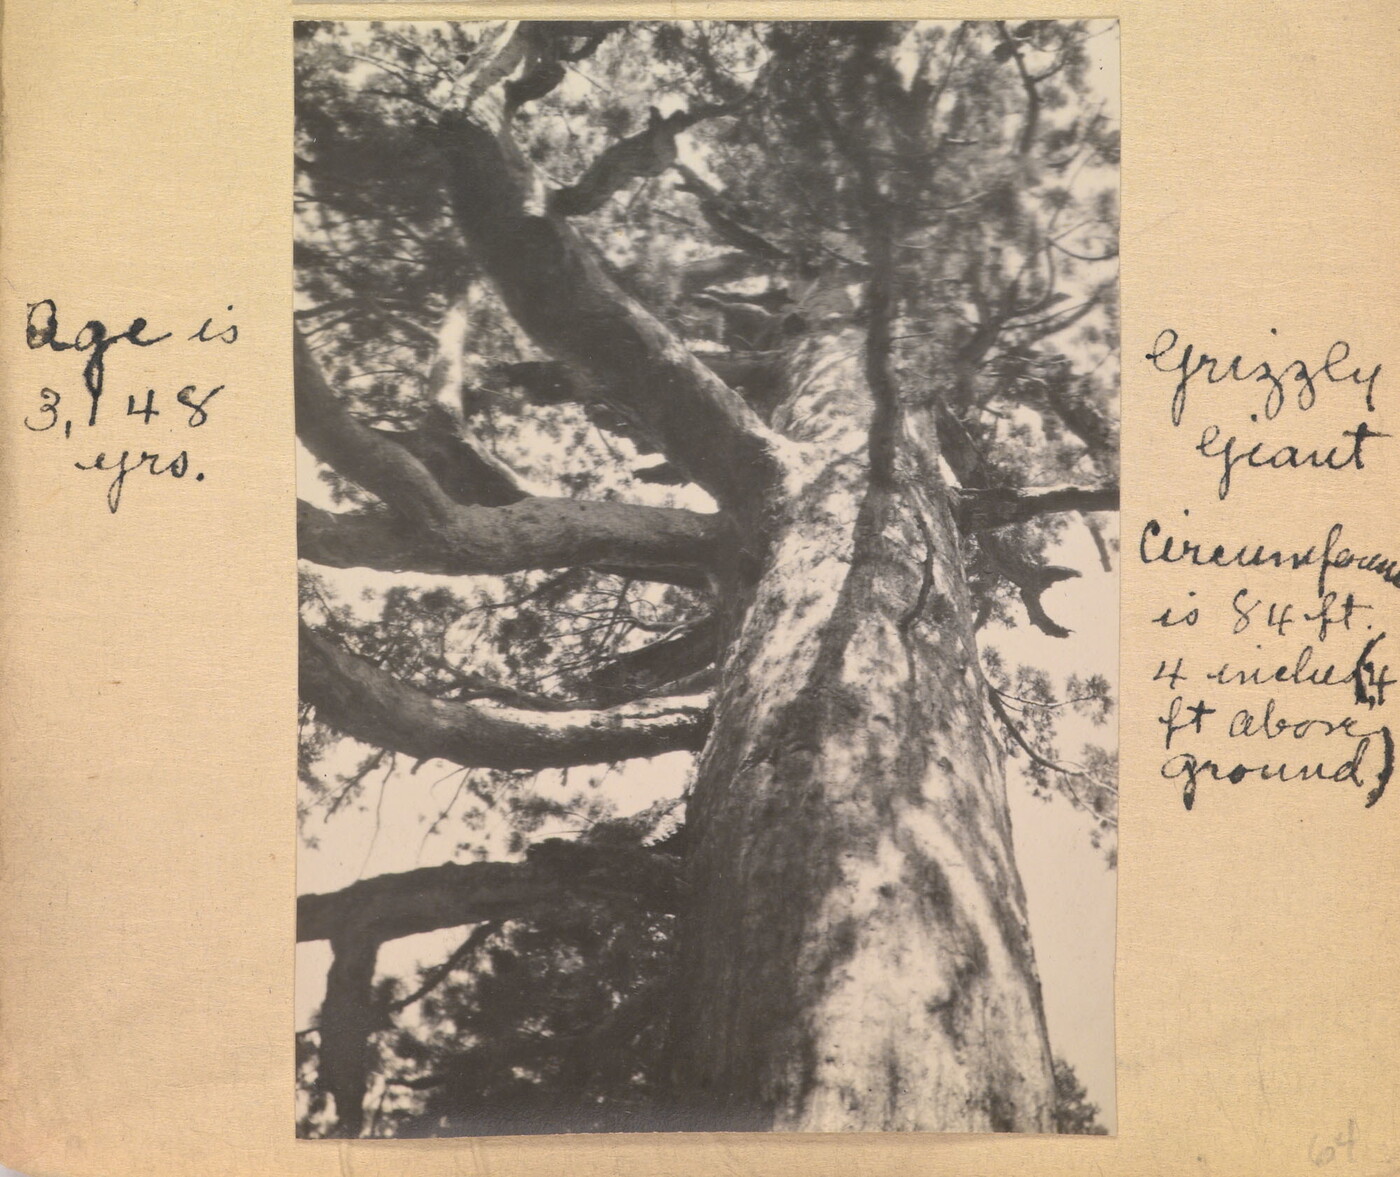 Age is
3,148
yrs.
Grizzly
Giant
is 84 ft.
4 inches (4
ft above
ground)
64